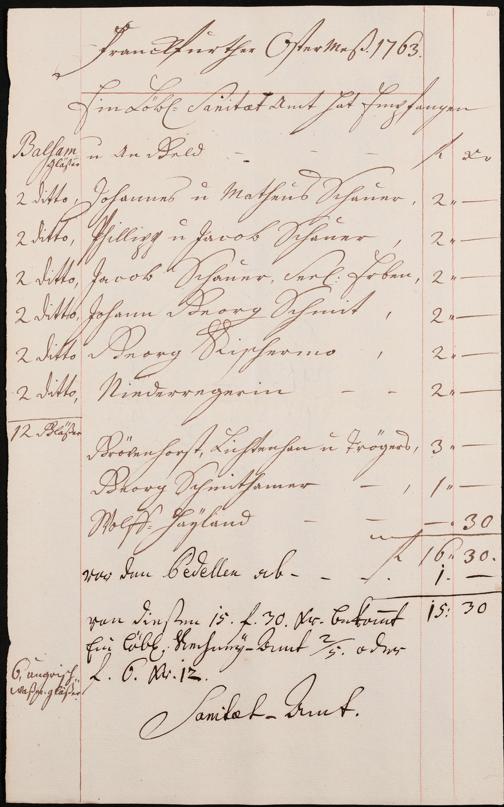 Franckfurther Oster Meß. 1763.
Ein Löbl: Sanitæt Amt hat Empfangen
Balsam
gläßer
u An Geld - - - f. xr.
2 ditto, Johannes u Matheus Schauer, 2 " —
2 ditto, Phillipp u Jacob Schauer, 2 " —
2 ditto, Jacob Schauer, Seel: Erben, 2 " —
2 ditto, Johann Georg Schmit, 2 " —
2 ditto Georg, 2 " —
2 ditto, Niederregerin - - 2 " —
12 Gläßer
Brödenhorst, Lichtenhan u Trögers, 3 " —
Georg Schmithamer -, 1 " —
Wolff: Hayland - - — " 30
f. 16 " 30.
vor den Pedellen ab - - - 1. —
von dießen 15. f. 30. Xr. bekomt 15: 30
Ein löbl. Rechnung-Amt 2/5. oder
f. 6. Xr. 12.
6, ungrisch
waßer gläßer
Sanitæt-Amt.